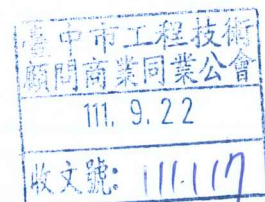 臺中市工程技術
顧問商業同業公會
111. 9. 22
收文號: 111.117